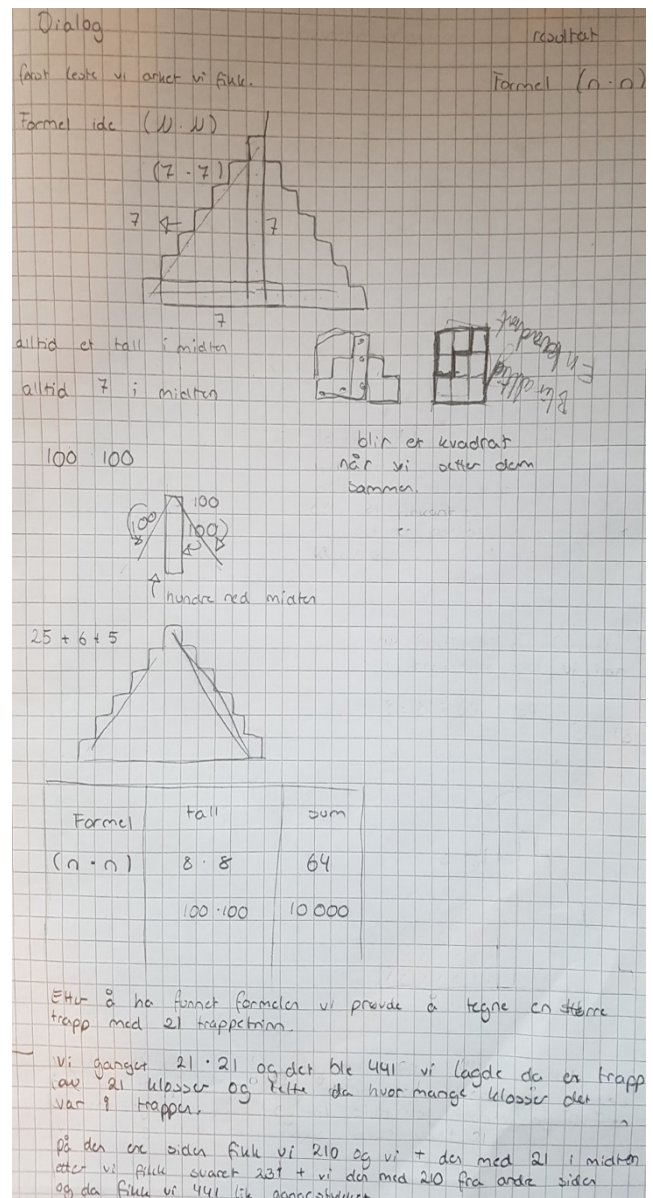 Dialog
resultat
først leste vi arket vi fikk.
Formel (n·n)
Formel ide (N·N)
(7·7)
7
7
7
alltid et tall i midten
alltid 7 i midten
En kvadrat
Blir alltid
blir et kvadrat
når vi setter dem
sammen.
100 100
100
100
100
hundre ned midten
25 + 6 + 5
Formel tall sum
(n·n) 8·8 64
100·100 10 000
Etter å ha funnet formelen vi prøvde å tegne en større
trapp med 21 trappetrinn.
vi ganget 21·21 og det ble 441 vi lagde da en trapp
av 21 klosser og telte da hvor mange klosser det
var i trappen.
på den ene siden fikk vi 210 og vi + den med 21 i midten
etter vi fikk svaret 231 + vi den med 210 fra andre siden
og da fikk vi 441 lik